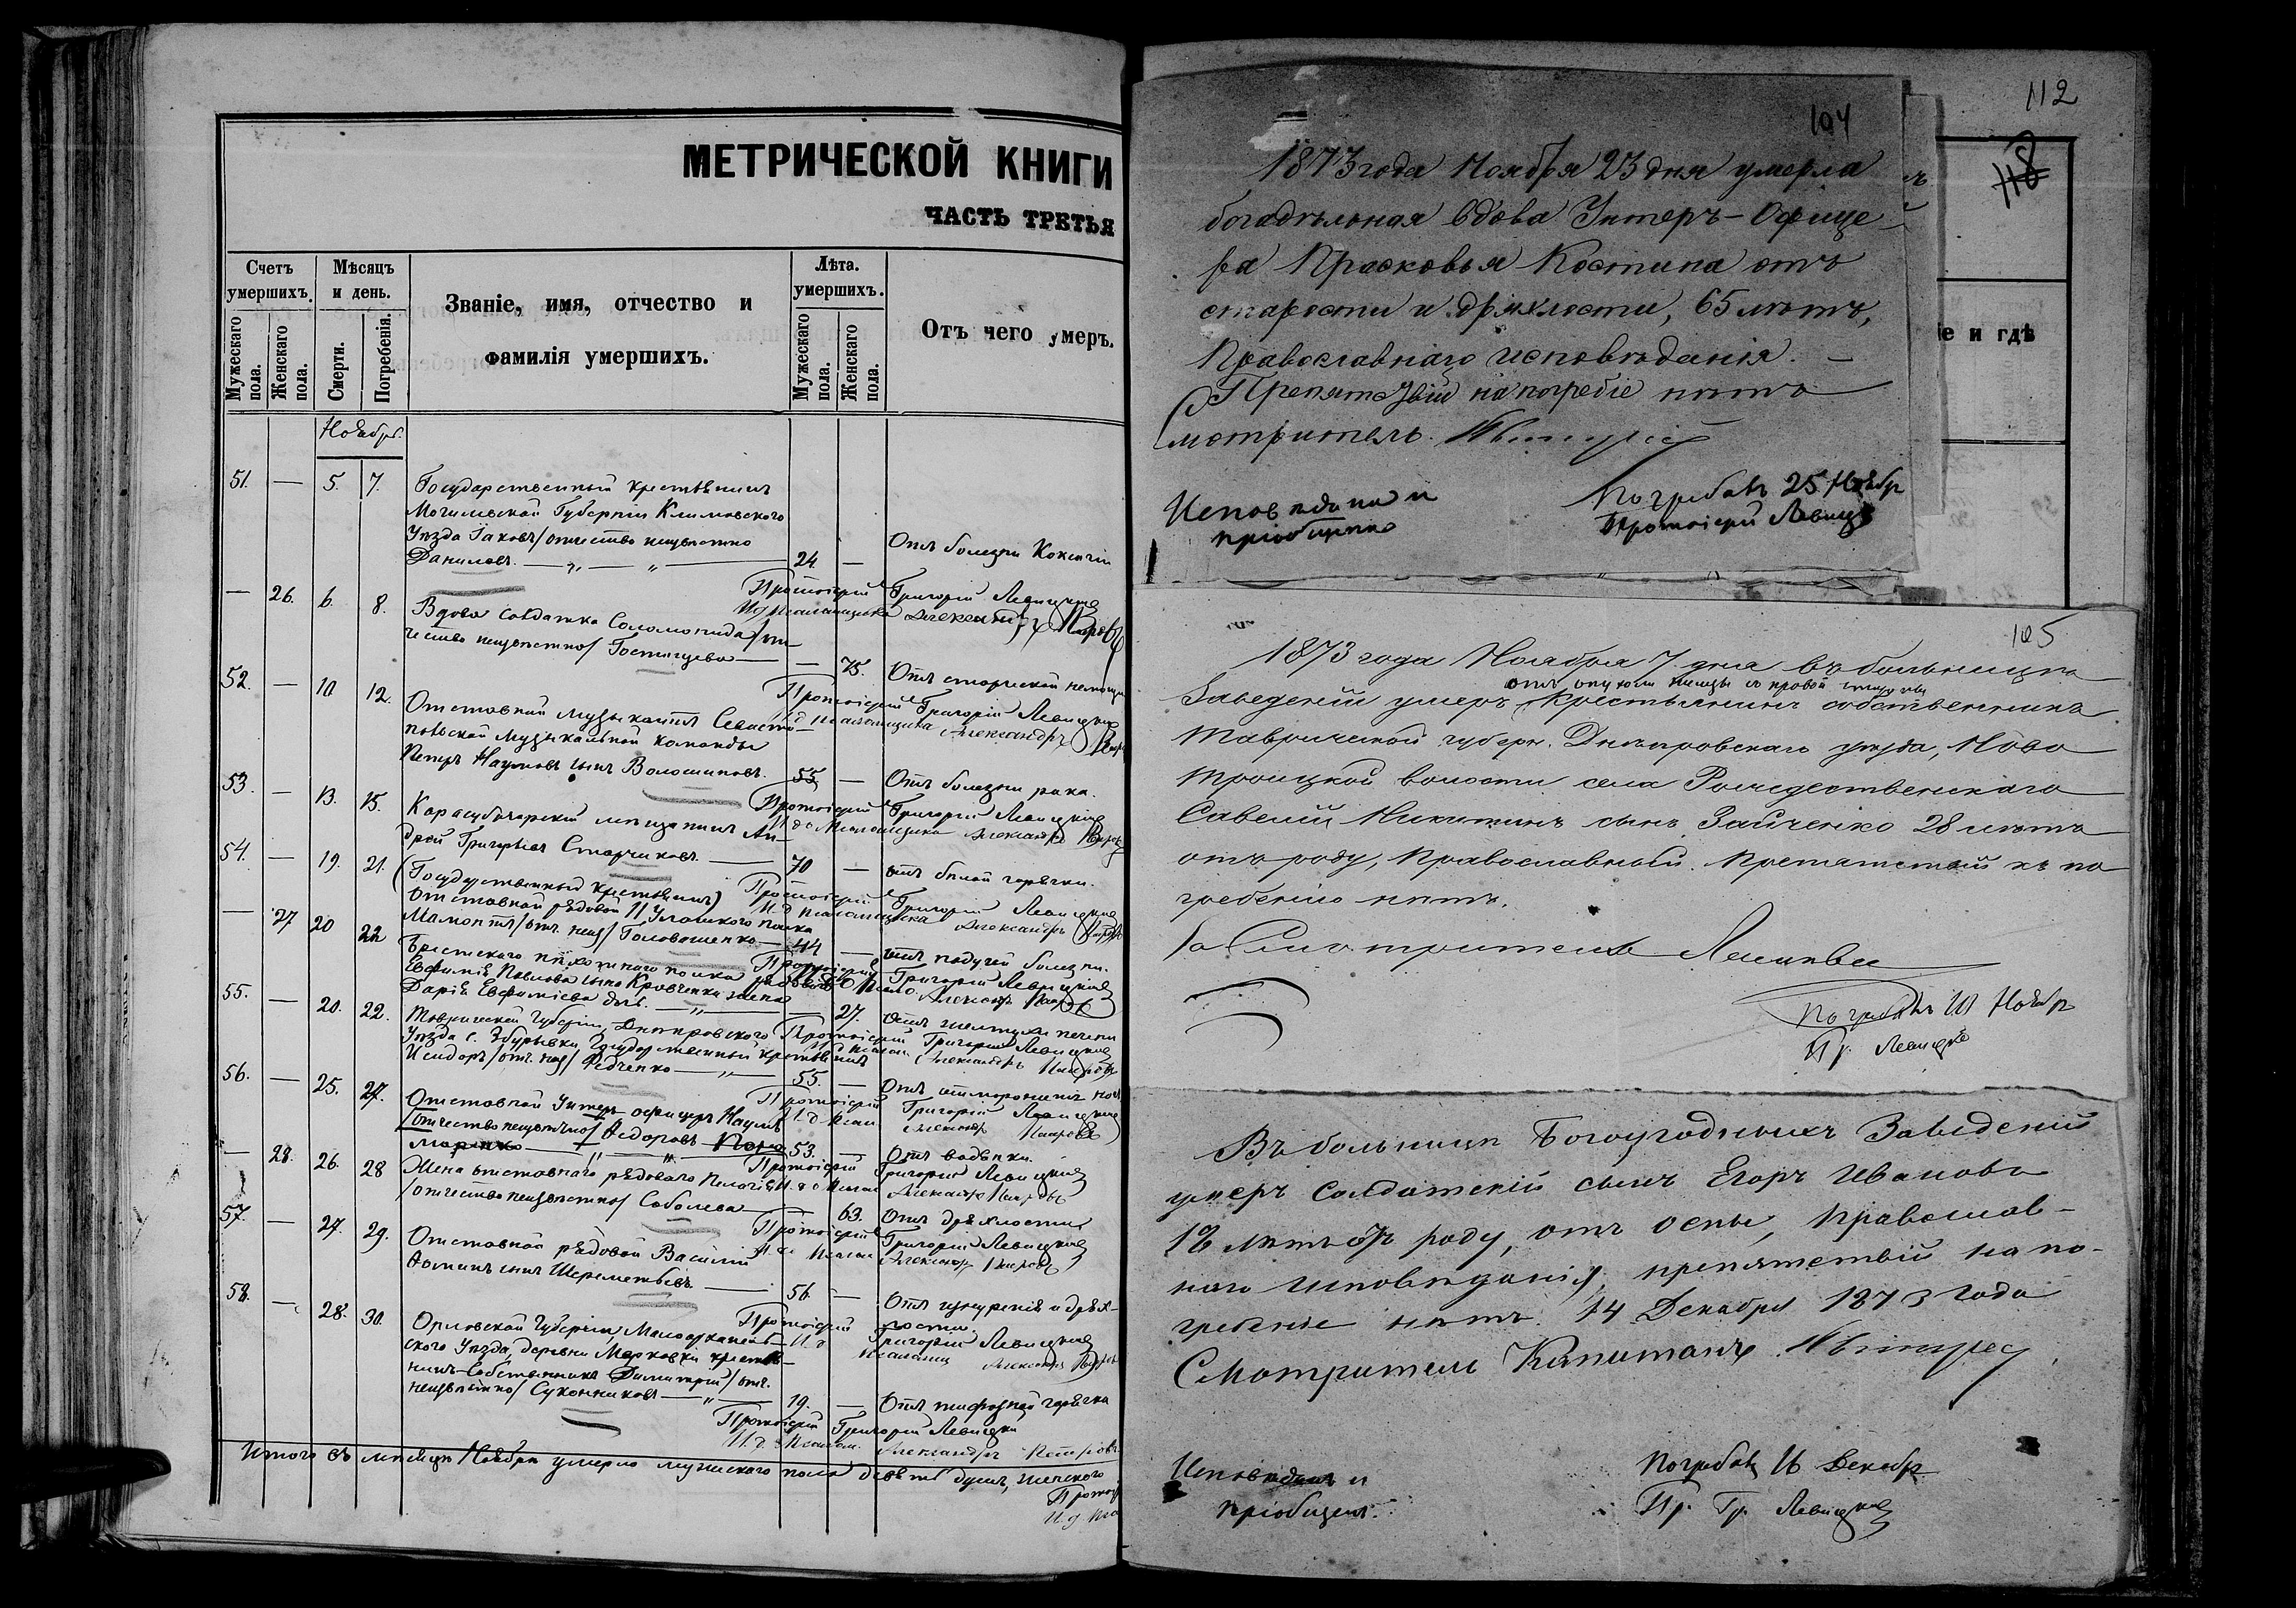 МЕТРИЧЕСКОЙ КНИГИ
ЧАСТЬ ТРЕТЬЯ
Счетъ умершихъ.
Мѣсяцъ и день.
Званіе, имя, отчество и
фамилія умершихъ.
Лѣта. умершихъ.
Отъ чего умеръ.
Мужескаго пола.
Женскаго пола.
Смерти.
Погребенія.
Мужескаго пола.
Женскаго пола.
Ноябрь.
51. — 5. 7. Государственный крестьянинъ
Могилевской Губерніи Климовскаго
Уѣзда Іаковъ /отчество неизвѣстно
Даниловъ. 24 — Отъ болезни
Протоіерей Григорій Левицкій
— 26. 6. 8. Вдова солдатка Соломонида /от-
чество неизвѣстно/ Гостищева — 75. Отъ старческой немощи
Протоіерей Григорій Левицкій
И. д псаломщика Александръ
52. — 10. 12. Отставной музыкантъ Севасто-
польской музыкальной команды
Петръ Наумовъ сынъ Волошиновъ. 55 — Отъ болезни рака.
Протоіерей Григорій Левицкій
53. — 13. 15. Карасубазарскій мещанинъ Ан-
дрей Григорьевъ Старчиковъ. 70 — отъ белой горячки.
Протоіерей Григорій Левицкій
54. — 19. 21. (Государственный крестьянинъ)
отставной рядовой 11 Уланскаго полка
Мамонтъ /отч. неиз/ Головашенко 44 — отъ падучей болезни.
Протоіерей Григорій Левицкій
— 27 20 22 Брестскаго пѣхотнаго полка рядоваго
Евфимія Павлова сына Кравченки жена
Дарія Евфиміева дочь. — 27. отъ желтухи печени
Протоіерей Григорій Левицкій
55. — 20. 22. Таврической Губерніи Днѣпровскаго
Уѣзда с. Збурьевки, Государственный крестьянинъ
Исидоръ /отч. неиз/ Федченко 55. — Отъ отмороженія ног
Протоіерей Григорій Левицкій
56. — 25. 27. Отставной Унтеръ офицеръ Наумъ
/отчество неизвѣстно/ Ѳедоровъ
53. — Отъ водянки.
Протоіерей Григорій Левицкій
— 28. 26. 28 Жена отставнаго рядоваго Пелагія
/отчество неизвѣстно/ Соболева — 63. Отъ дряхлости
Протоіерей Григорій Левицкій
57. — 27. 29. Отставной рядовой Василій
Ѳоминъ сынъ Шереметьевъ. 56. — Отъ изнуренія и дрях-
лости
Протоіерей Григорій Левицкій
58. — 28. 30. Орловской Губерніи, Малоархангель-
скаго Уѣзда, деревни Марковки крестья-
нинъ-собственникъ Димитрій /отч.
неизвѣстно/ Суконниковъ 19. — Отъ тифозной горячки
Протоіерей Григорій Левицкій
И. д. псалом. Александръ Петровъ
Итого въ мѣсяцѣ Ноябрѣ умерло мужескаго пола девять душъ, женскаго
112
118
104
1873 года Ноября 23 дня умерла
богадѣльная вдова Унтеръ-Офице-
ра Прасковья Костина отъ
старости и дряхлости, 65 лѣтъ,
Православнаго исповѣданія. —
Препятствій на погребіе нѣтъ
Смотритель.
Исповѣдана и
пріобщена
Погребалъ 25 Ноябр
Протоіерей Левицкій
іе и гдѣ
105
1873 года Ноября 7 дня въ больницѣ
отъ опухоли печени съ правой стороны
Заведеній умеръ крестьянинъ собственникъ
Таврической губерн. Днѣпровскаго уѣзда, Ново
Троицкой волости села Рождественскаго
Савелій Никитинъ сынъ Зайченко 28 лѣтъ
отъ роду, Православный. Препятствій къ по
гребенію нѣтъ.
За Смотрителя
Погребалъ 10 Ноябр
Пр. Левицкій
Въ больницѣ Богоугодныхъ Заведеній
умеръ Солдатскій сынъ Егоръ Ивановъ
18 лѣтъ отъ роду, отъ оспы, Православ-
наго исповѣданія, препятствій на по-
гребеніе нѣтъ. 14 Декабря 1873 года
Смотритель Капитанъ
Исповѣданъ и
пріобщенъ.
Погребалъ 16 Декабр
Пр. Гр. Левицкій